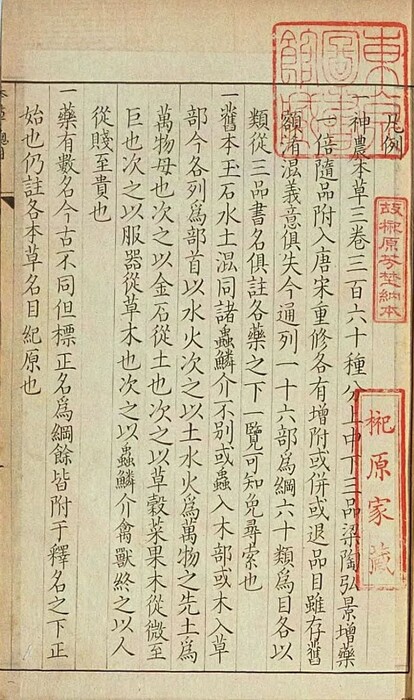 凡例
神農本草三卷三百六十種分上中下三品梁陶弘景增藥
一倍隨品附入唐宋重修各有增附或併或退品目雖存舊
額淆混義意俱失今通列一十六部爲綱六十類爲目各以
類從三品書名俱註各藥之下一覽可知免尋索也
一舊本玉石水土混同諸蟲鱗介不別或蟲入木部或木入草
部今各列爲部首以水火次之以土水火爲萬物之先土爲
萬物母也次之以金石從土也次之以草穀菜果木從微至
巨也次之以服器從草木也次之以蟲鱗介禽獸終之以人
從賤至貴也
一藥有數名今古不同但標正名爲綱餘皆附于釋名之下正
始也仍註各本草名目紀原也
故榊原芳埜納本
榊原家藏